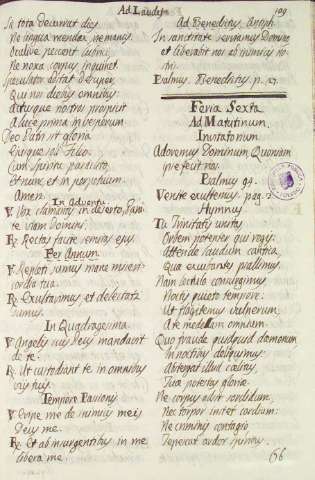 Ad Laudes
109
Sic tota decurrat dies
Ne lingua mendax, ne manus
Oculive peccent lubrici
Ne noxa corpus inquinet
Speculator adstat desuper
Qui nos diebus omnibus
Actusque nostros prospicit
A luce prima in vesperum
Deo Patri sit gloria
Eiusque soli Filio
Cum Spiritu paraclito
et nunc et in perpetuum
Amen.
In Adventu
V. Vox clamantis in deserto, Para-
te viam Domini.
R. Rectas facite semitas ejus.
Per Annum
V. Repleti sumus mane miseri-
cordia tua.
R. Exultavimus, et delectati
sumus.
In Quadragesima
V. Angelis suis Deus mandavit
de te.
R. Ut custodiant te in omnibus
viis suis.
Tempore Passionis
V. Eripe me de inimicis meis
Deus me.
R. Et ab insurgentibus in me
libera me.
Ad Benedictus Antiph.
In sanctitate serviamus Domino
et liberabit nos ab inimicis no-
stris
Psalmus Benedictus p. 27.
Feria Sexta
Ad Matutinum.
Invitatorium
Adoremus Dominum, Quoniam
ipse fecit nos.
Psalmus 94.
Venite exultemus pag. 2
Hymnus
Tu Trinitatis unitas
Orbem potenter qui regis
Attende laudum cantica
Quae excubantes psallimus.
Nam lectulo consurgimus
Noctis quieto tempore
Ut flagitemus vulnerum
A te medelam omnium
Quo fraude quidquid daemonum
In noctibus deliquimus
Abstergat illud caelitus
Tuae potestas gloriae.
Ne corpus adsit sordidum
Nec torpor instet cordium
Ne criminis contagio
Tepescat ardor spiritus.